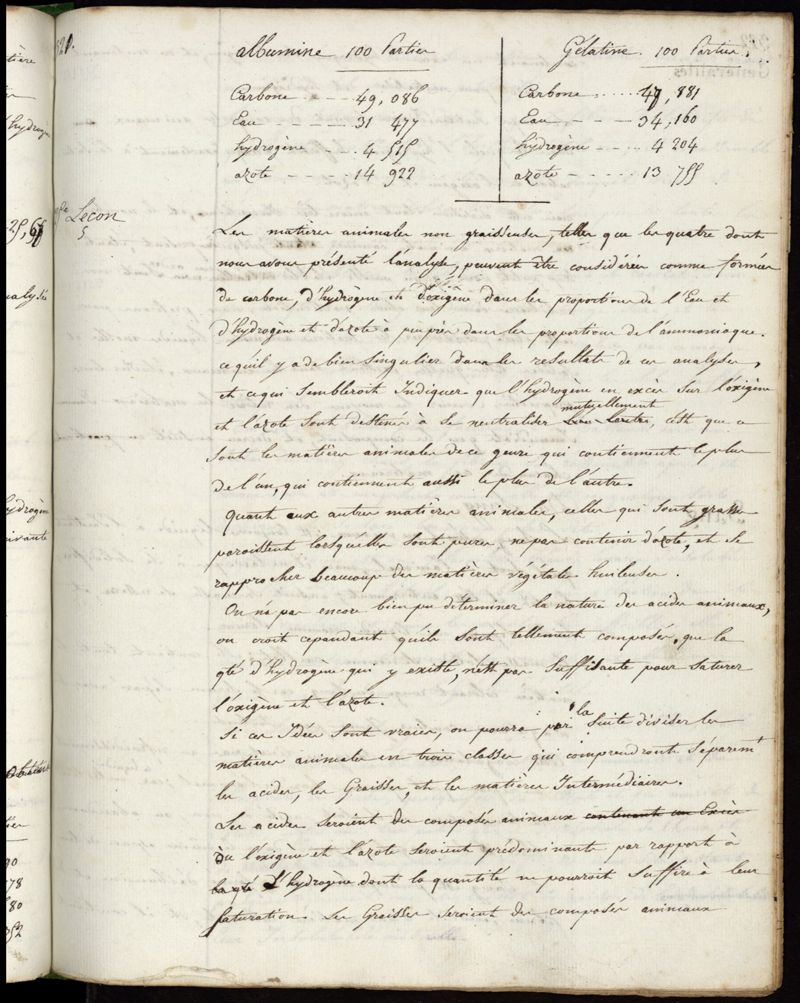 321.
albumine 100 Parties
Carbone - - - 49, 086
Eau - - - - - 31 477
hydrogène - - - 4 515
azote - - - - 14 922
Gélatine. 100 Parties.
Carbone - - - - 47, 881
Eau - - - - 34, 160
hydrogène - - - 4 204
azote - - - - - 13 755
Leçon
5
Les matieres animales non graisseuses, telles que les quatre dont
nous avons présenté l'analyse, peuvent être considérées comme formées
de carbone, d'hydrogène et d'oxigène dans les proportions de l'Eau et
d'hydrogène et d'azote à peu près dans les proportions de l'ammoniaque.
ce qu'il y a de bien singulier dans les resultats de ces analyses,
et ce qui sembleroit Indiquer que l'hydrogène en excès sur l'oxigène
et l'azote sont destinés à se neutraliser mutuellement, c'est que ce
sont les matières animales de ce genre qui contiennent le plus
de l'un, qui contiennent aussi le plus de l'autre.
Quant aux autres matières animales, celles qui sont grasses
paroissent lorsqu'elles sont pures ne pas contenir d'azote, et se
rapprocher beaucoup des matières végétales huileuses.
On n'a pas encore bien pu déterminer la nature des acides animaux,
on croit cependant qu'ils sont tellement composés, que la
qté d'hydrogène qui y existe, n'est pas suffisante pour saturer
l'oxigène et l'azote.
Si ces Idées sont vraies, on pourra par la suite diviser les
matières animales en trois classes qui comprendront séparemt
les acides, les Graisses, et les matières Intermédiaires.
Les acides seroient des composés animaux contenant un Excès
où l'oxigène et l'azote seroient prédominants par rapport à
la qté d'hydrogène dont la quantité ne pourroit suffire à leur
saturation. Les Graisses seroient des composés animaux